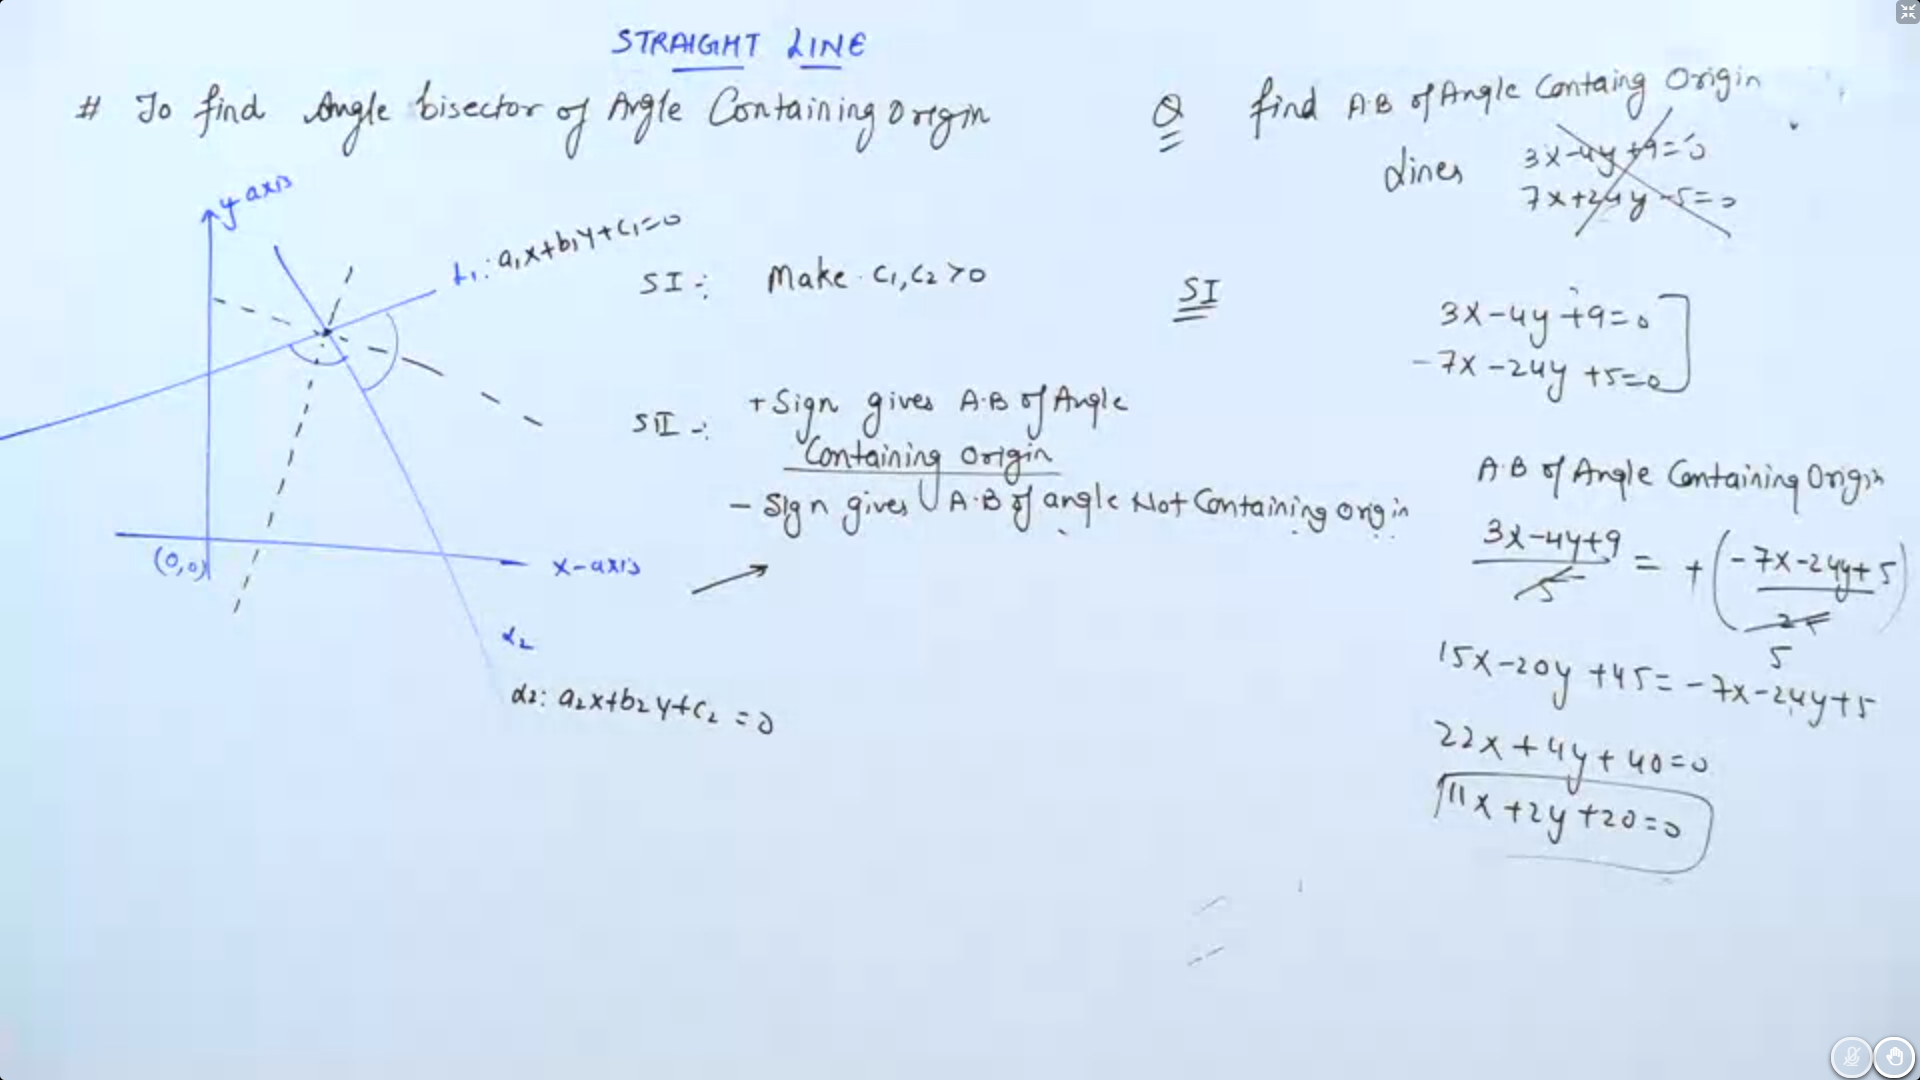 STRAIGHT LINE
# To find Angle bisector of Angle Containing Origin
y-axis
L1: a1x+b1y+c1=0
SI -: Make c1,c2 >0
SII -: + Sign gives A.B of Angle
Containing origin
- Sign gives A.B of angle Not Containing origin
(0,0)
x-axis
L2
L2: a2x+b2y+c2 =0
Q find A.B of Angle Containg Origin
Lines 3x-4y+9=0
7x+24y-5=0
SI
3x-4y+9=0
-7x-24y+5=0
A.B of Angle Containing Origin
3x-4y+9/5 = +(-7x-24y+5/25)
5
15x-20y+45=-7x-24y+5
22x+4y+40=0
11x+2y+20=0